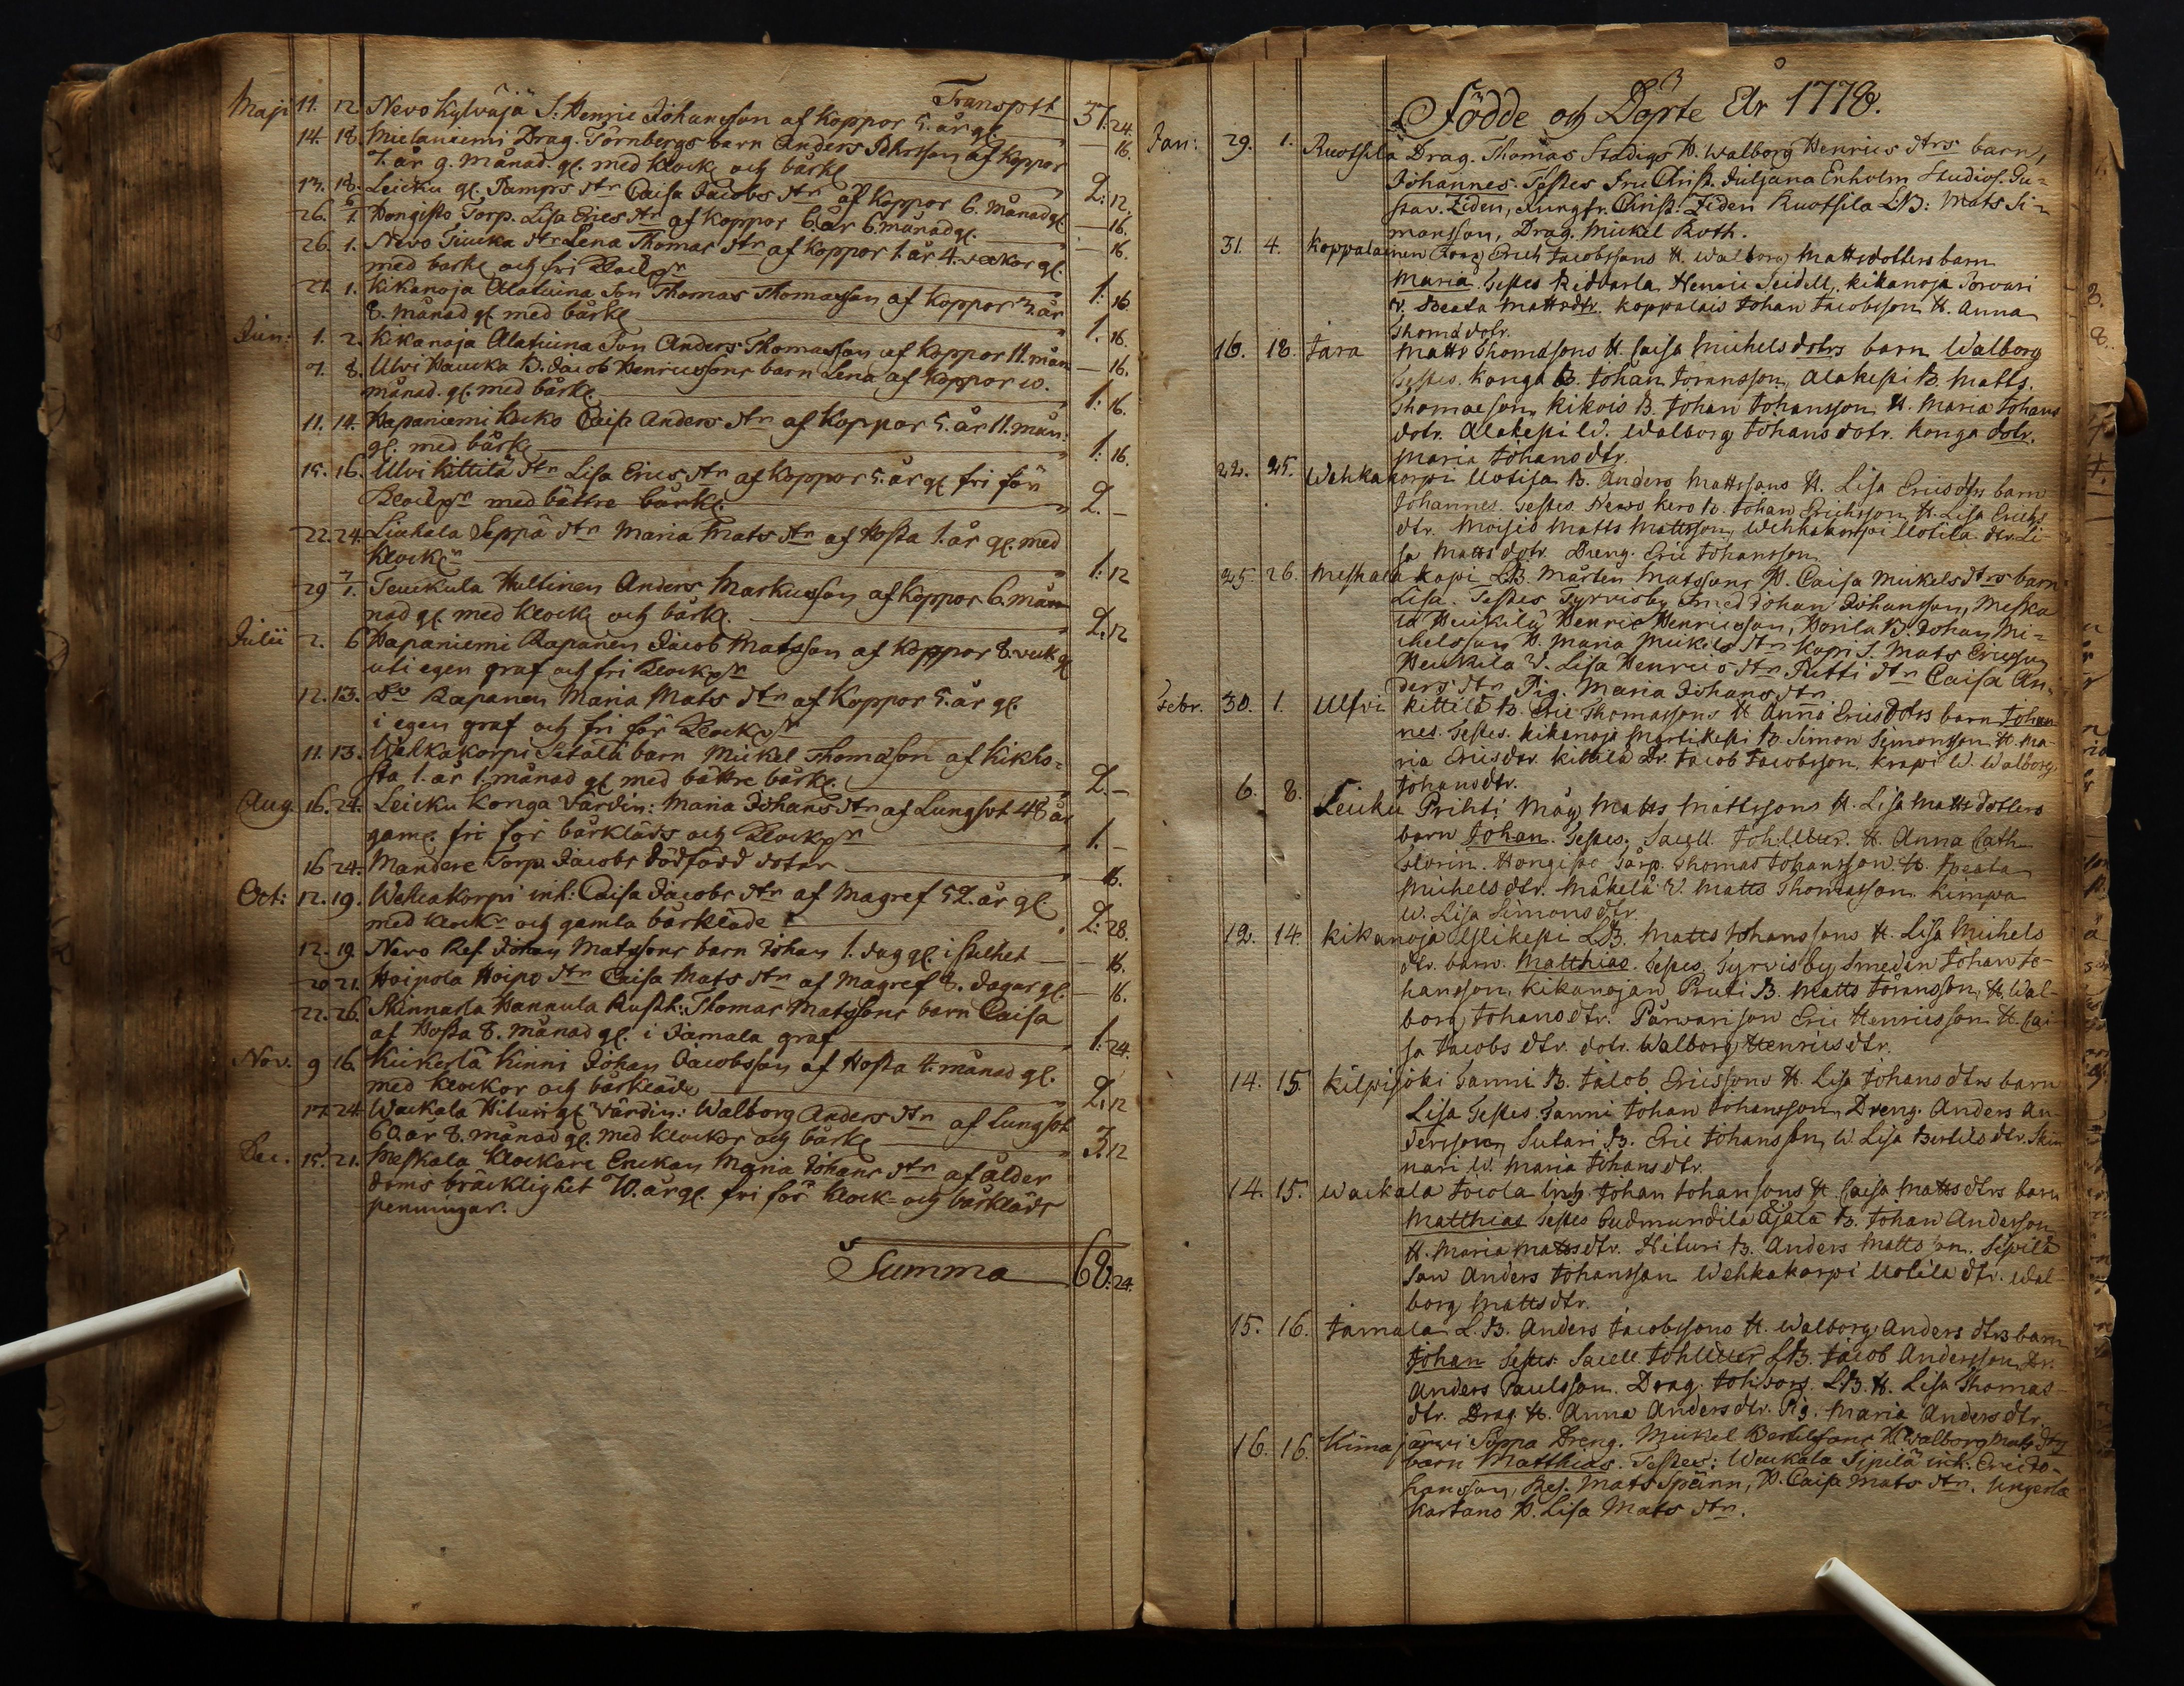 Transpt
Maji 11. 12. Nevo Kylväjä S: Henric Johansson af Koppor 5. år gl. 37. 24.
14. 18. Mielaniemi Drag. Törnbergs barn Anders Johsson af Koppor — 16.
7. år 9. månad. gl. med Klock och bårkl
13. 18. Leicku gl. Pamps dtr Caisa Jacobs dtr af Koppor 6. månad gl 2: 12.
26. 6/1. Hongisto Torp. Lisa Erics dtr af Koppor 6. år 6. månad gl. — 16.
26. 1. Nevo Tiucka dtr Lena Thomas dtr af Koppor 1. år 4. veckor gl. — 16.
med barkl och fri
21. 1. Kikanoja Alatuina Son Thomas Thomasson af Koppor 3. år 1: 16
8. månad gl med bårkl
Jun: 1. 2. Kikanoja Alatuina Son Anders Thomasson af Koppor 11. mån 1. 16.
7. 8. Ulvi Haucka B. Jacob Henricssons barn Lena af Koppor 10. — 16.
månad. gl. med bårkl. 1: 16.
11. 14. Hapaniemi Kocko Caisa Anders dtr af Koppor 5. år 11. mån:
gl. med bårkl 1: 16.
15. 16. Ulvi Kittilä dtr Lisa Erics dtr af Koppor 5. år gl fri för
med bättre bårkl. 2. –
22. 24. Liukala Seppä dtr Maria Mats dtr af Hosta 1. år gl. med
Klockr 1: 12
29 7/1. Teuckula Hultinen Anders Markusson af Koppor 6. må-
nad gl med Klock och bårkl. 2. 12
Julii 2. 6 Hapaniemi Rapanen Jacob Matsson af Koppor 8. veck gl
uti egen graf och fri
12. 13. Do Rapanen Maria Mats dtr af Koppor 5. år gl.
i egen graf och fri för
11. 13. Walkakorpi Jetälä barn Mickel Thomasson af Kikho-
sta 1. år 1. månad gl med bättre bårkl. 2. –
Aug 16. 24. Leicku Konga Värdin: Maria Johans dtr af Lungsot 48 år
gaml. fri för bårkläds och 1. –
16 24. Mandere Torp. Jacobs dödfödd doter — 16.
Oct: 12. 19. Wehkakorpi inh: Caisa Jacobs dtr af Magref 52. år gl
med klockr och gamla bårkläde 2: 28.
12. 19. Navo Ref. Johan Matssons barn Johan 1. dag gl. i stilhet — 16.
20 21. Hoipola Hoipo dtr Caisa Mats dtr af Magref 8. dagar gl. — 16.
22. 26. Skinnarla Hannula Rusth: Thomas Matssons barn Caisa
af Hosta 8. månad gl. i Jamala graf 1: 24.
Nov. 9 16. Kuckerlä Kinni Johan Jacobsson af Hosta 4. månad gl.
med klockor och bårkläde 2. 12
17. 24. Wackala Hituri gl Värdin: Walborg Anders dtr af Lungsot
60. år 8. månad gl. med klockor och bårkl 3. 12
Dec. 15. 21. Meskala Klockare Enckan Maria Johans dtr af ålder
doms bräcklighet 70. år gl. fri för Klock- och bårkläds
penningar.
Summa 68. 24.
Födde och Döpte År 1778.
Jan: 29. 1. Ruotsila Drag. Thomas Stadigs H. Walborg Henrics dtrs barn,
Johannes. Testes Fru Christ. Juliana Enholm Studios. Gu-
stav. Liden, Jungfr. Christ: Liden Ruotsila L.B: Mats Si-
monsson, Drag. Mickel Roth.
31. 4. Koppalainen Erich Jacobssons H. Walborg Mattsdotters barn
Maria. Testes Riddarla Henric Seidell, Kikanoja Torvari
V. Beata Matts dtr. Koppalais Johan Jacobsson H. Anna
Thoma dotr.
16. 18. Jara Matts Thomasons H. Caisa Michels dotrs barn Walborg
Testes. Konga B. Johan Göransson, Alakespi B. Matts.
Thomaeson, Kikois B. Johan Johansson H. Maria Johans
dotr. Alakespi W. Walborg Johans dotr. Konga dotr.
Maria Johans dtr.
22. 25. Wehkakorpi Uotila B. Anders Mattssons H. Lisa Erics dtrs barn
Johannes. Testes Nevo Kero B. Johan Erichsson, H. Lisa Erichs
dtr. Moisio Matts Mattsson, Wehkakorpi Uotila dtr. Li-
sa Matts dotr. Dreng. Eric Johansson
25. 26. Meskala Kapi LB. Mårten Matssons H. Caisa Mickels dtrs barn
Lisa. Testes Tyrvisby Smed Johan Johansson, Meska
la Heickilä Henric Henricsson, Horila B. Johan Mi-
chelsson H. Maria Mickels dtr Kapi S. Mats Ericsson
Heickila V. Lisa Henrics dtr Pitti dtr Caisa An-
ders dtr Pig. Maria Johans dtr.
Febr. 30. 1. Ulfvi Kittilä B. Eric Thomassons H Anna Erics Dotrs barn Johan
nes. Testes. Kikanoja Myrtikespi B. Simon Simonsson H. Ma-
ria Erics dtr. Kittilä Dr. Jacob Jacobsson, Krapi W. Walborg
Johans dtr.
6. 8. Leicku Prihti Måg Matts Mattssons H. Lisa Matts dotters
barn Johan. Testes. Sacell. H. Anna Cath
Florin. Hongisto Tårp. Thomas Johansson H. Beata
Michels dtr. Mäkelä V. Matts Thomasson Kimpa
W. Lisa Simons dtr.
12. 14. Kikanoja Ylikespi LB. Matts Johanssons H. Lisa Michels
dtr. barn. Matthias. Testes. Tyrvisby Smeden Johan Jo-
hansson, Kikanojan Pruti B. Matts Göransson, H. Wal-
borg Johans dtr. Parvari son Eric Henricsson H. Cai-
sa Jacobs dtr. dotr. Walborg Henrics dtr.
14. 15. Kilpisjoki Sanni B. Jacob Ericssons H. Lisa Johans dtrs barn
Lisa Testes. Sanni Johan Johansson, Dreng. Anders An-
dersson, Sutari B. Eric Johansson, W. Lisa Bertils dtr. Skin
nari W. Maria Johans dtr.
14. 15. Wackala Tocola Johan Johansons H Caisa Matts dtrs barn
Matthias Testes Gudmundila Äjälä B. Johan Anderson
H. Maria Matts dtr. Hituri B. Anders Mattsson. Sipilä
Son Anders Johansson Wehkakorpi Uotila dtr. Wal-
borg Matts dtr.
15. 16. Jamala L. B. Anders Jacobssons H. Walborg Anders dtrs barn
Johan Testes Sacell. L.B. Jacob Andersson, Dr.
Anders Paulsson. Drag. L.B. H. Lisa Thomas-
dtr. Drag. H. Anna Anders dtr. Pig. Maria Anders dtr.
16. 16. Kimajärvi Seppä Dreng. Mickel Bertilssons H. Walborg Mats dtrs
barn Matthias. Testes: Wackala Sipilä inh. Eric Jo-
hansson, Ref. Mats Spänn, H. Caisa Mats dtr. Ungerla
Kartano H. Lisa Mats dtr.